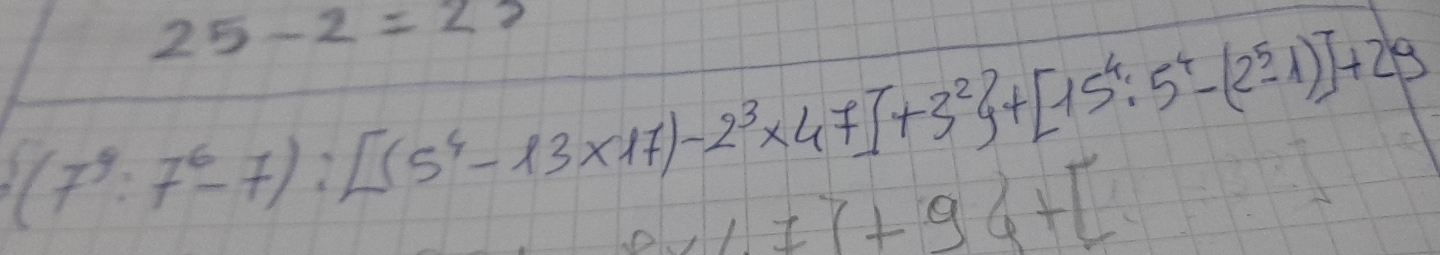 25 - 2 = 23
{(7⁹ : 7⁶ - 7) : [(5⁴ - 13 × 17) - 2³ × 47] + 3²} + [15⁴ : 5⁴ - (2⁵ - 1)] + 29
7] + 9} + [